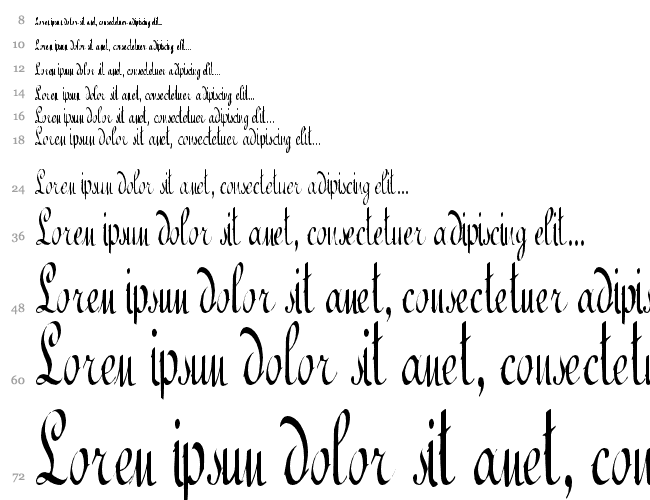 8 Lorem ipsum dolor sit amet, consectetuer adipiscing elit...
10 Lorem ipsum dolor sit amet, consectetuer adipiscing elit...
12 Lorem ipsum dolor sit amet, consectetuer adipiscing elit...
14 Lorem ipsum dolor sit amet, consectetuer adipiscing elit...
16 Lorem ipsum dolor sit amet, consectetuer adipiscing elit...
18 Lorem ipsum dolor sit amet, consectetuer adipiscing elit...
24 Lorem ipsum dolor sit amet, consectetuer adipiscing elit...
36 Lorem ipsum dolor sit amet, consectetuer adipiscing elit...
48 Lorem ipsum dolor sit amet, consectetuer adipis
60 Lorem ipsum dolor sit amet, consectetu
72 Lorem ipsum dolor sit amet, con